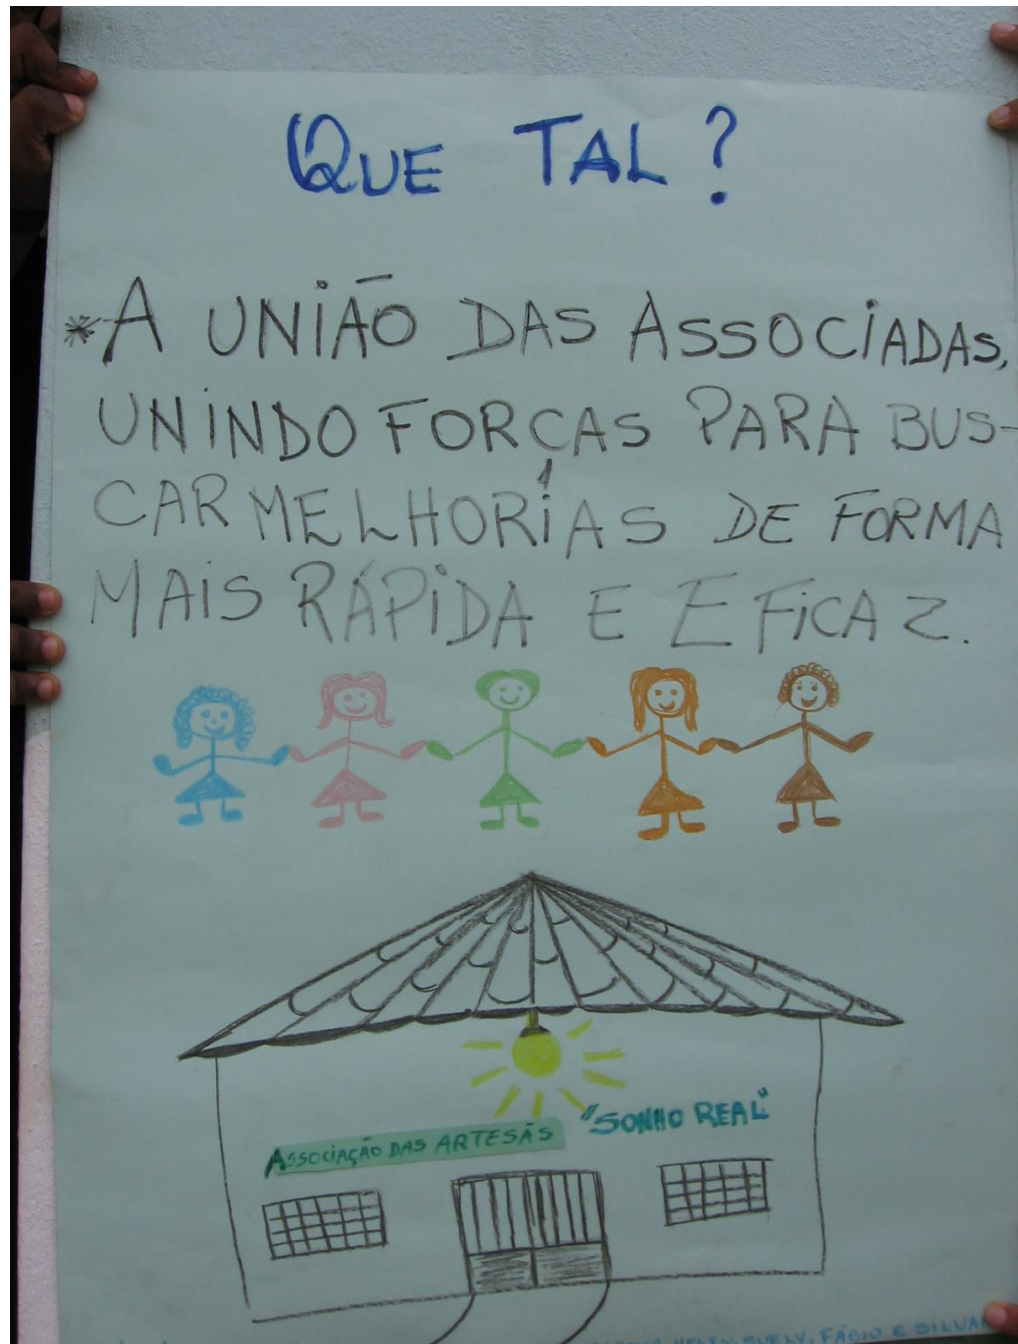 QUE TAL?
*A UNIÃO DAS ASSOCIADAS,
UNINDO FORÇAS PARA BUS-
CAR MELHORIAS DE FORMA
MAIS RÁPIDA E EFICAZ.
"SONHO REAL"
ASSOCIAÇÃO DAS ARTESÃS
HELEN, SUELY, FÁBIO E